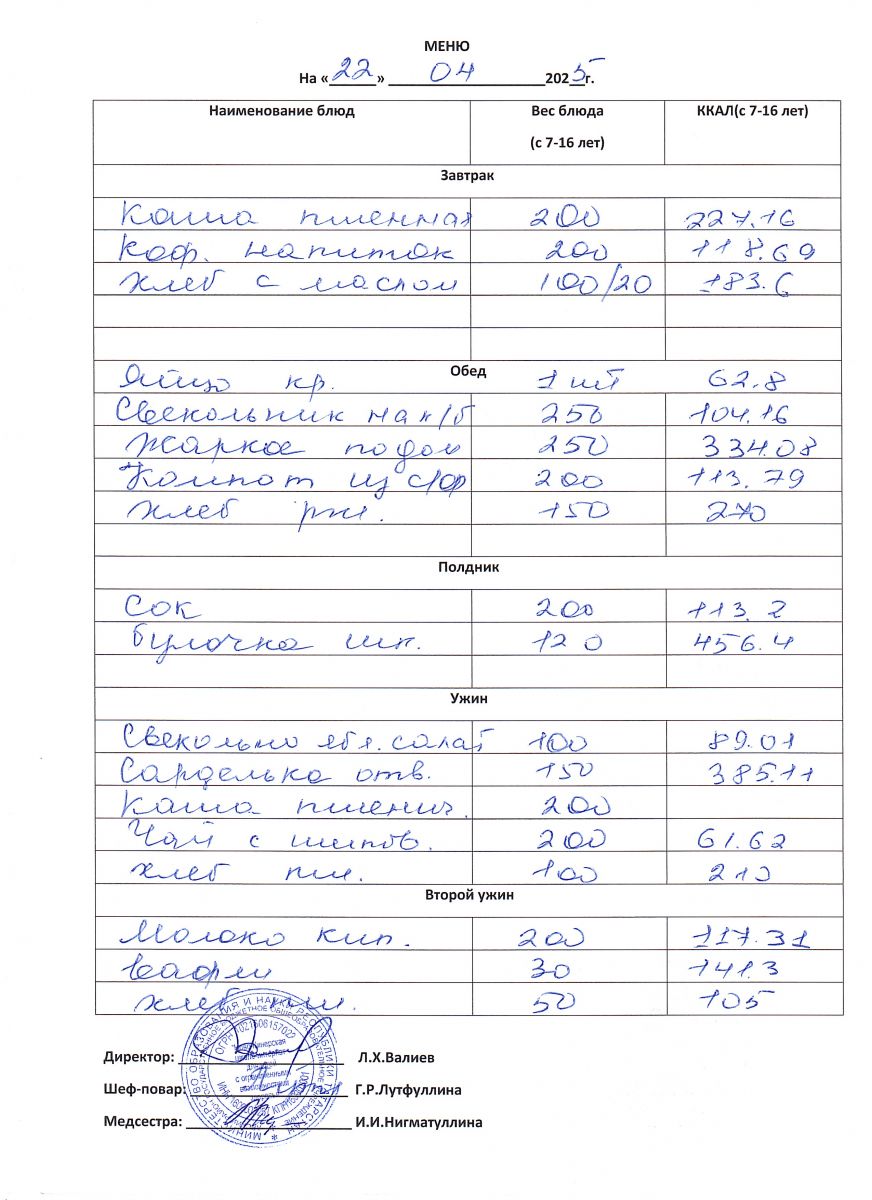 МЕНЮ
На «22» 04 2025г.
Наименование блюд Вес блюда (с 7-16 лет) ККАЛ(с 7-16 лет)
Завтрак
Каша пшенная 200 227.16
Коф. напиток 200 118.69
Хлеб с маслом 100/20 183.6
Обед
Яйцо кр. 1 шт 62.8
Свекольник на к/б 250 104.16
Жаркое по дом 250 334.08
Компот из с/ф 200 113.79
Хлеб рж. 150 270
Полдник
Сок 200 113.2
Булочка шк. 120 456.4
Ужин
Свекольно ябл. салат 100 89.01
Сарделька отв. 150 385.11
Каша пшенич. 200
Чай с шипов. 200 61.62
Хлеб пш. 100 210
Второй ужин
Молоко кип. 200 117.31
Вафли 30 141.3
Хлеб пш. 50 105
Директор: Л.Х.Валиев
Шеф-повар: Г.Р.Лутфуллина
Медсестра: И.И.Нигматуллина